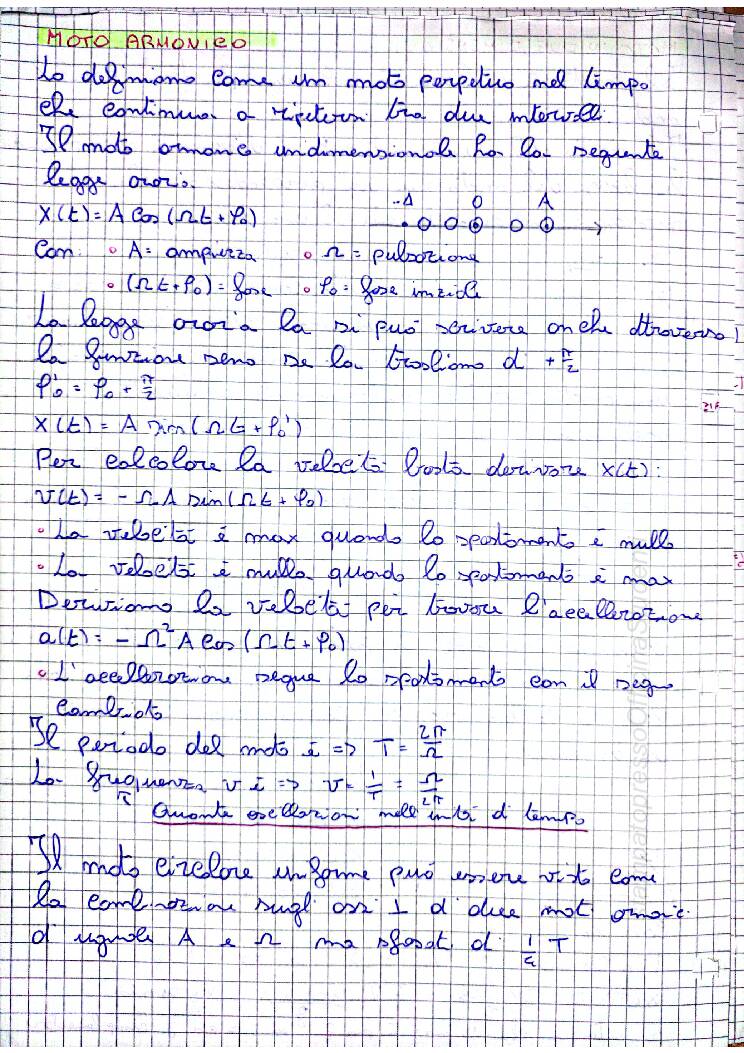 MOTO ARMONICO
Lo definiamo come un moto perpetuo nel tempo
che continua a ripetersi tra due intervalli.
Il moto armonico unidimensionale ha la seguente
legge oraria.
X(t) = A cos (Ωt + φ₀)
-A O A
Con: • A = ampiezza • Ω = pulsazione
• (Ωt + φ₀) = fase • φ₀ = fase iniziale
La legge oraria la si può scrivere anche attraverso
la funzione seno se la trasliamo di + π/2
φ₀' = φ₀ + π/2
X(t) = A sin(Ωt + φ₀')
Per calcolare la velocità basta derivare x(t):
v(t) = - ΩA sin(Ωt + φ₀)
• La velocità è max quando lo spostamento è nullo
• La velocità è nulla quando lo spostamento è max
Deriviamo la velocità per trovare l'accellerazione
a(t) = - Ω² A cos (Ωt + φ₀)
• L'accellerazione segue lo spostamento con il segno
cambiato
Il periodo del moto è => T = 2π/Ω
La frequenza ν è => ν = 1/T = Ω/2π
Quante oscillazioni nell'unità di tempo
Il moto circolare uniforme può essere visto come
la combinazione sugli assi ⊥ di due moti armonici
di uguale A e Ω ma sfasati di 1/4 T